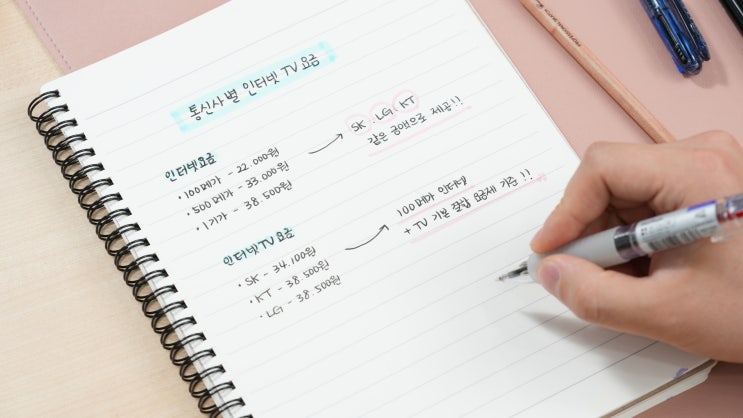 통신사별 인터넷 TV 요금
인터넷요금
• 100메가 - 22.000원
• 500메가 - 33.000원
• 1기가 - 38.500원
SK . LG . KT
같은 금액으로 제공!!
인터넷TV요금
• SK - 34.100원
• KT - 38.500원
• LG - 38.500원
100메가 인터넷
+ TV 기본 요금제 기준!!